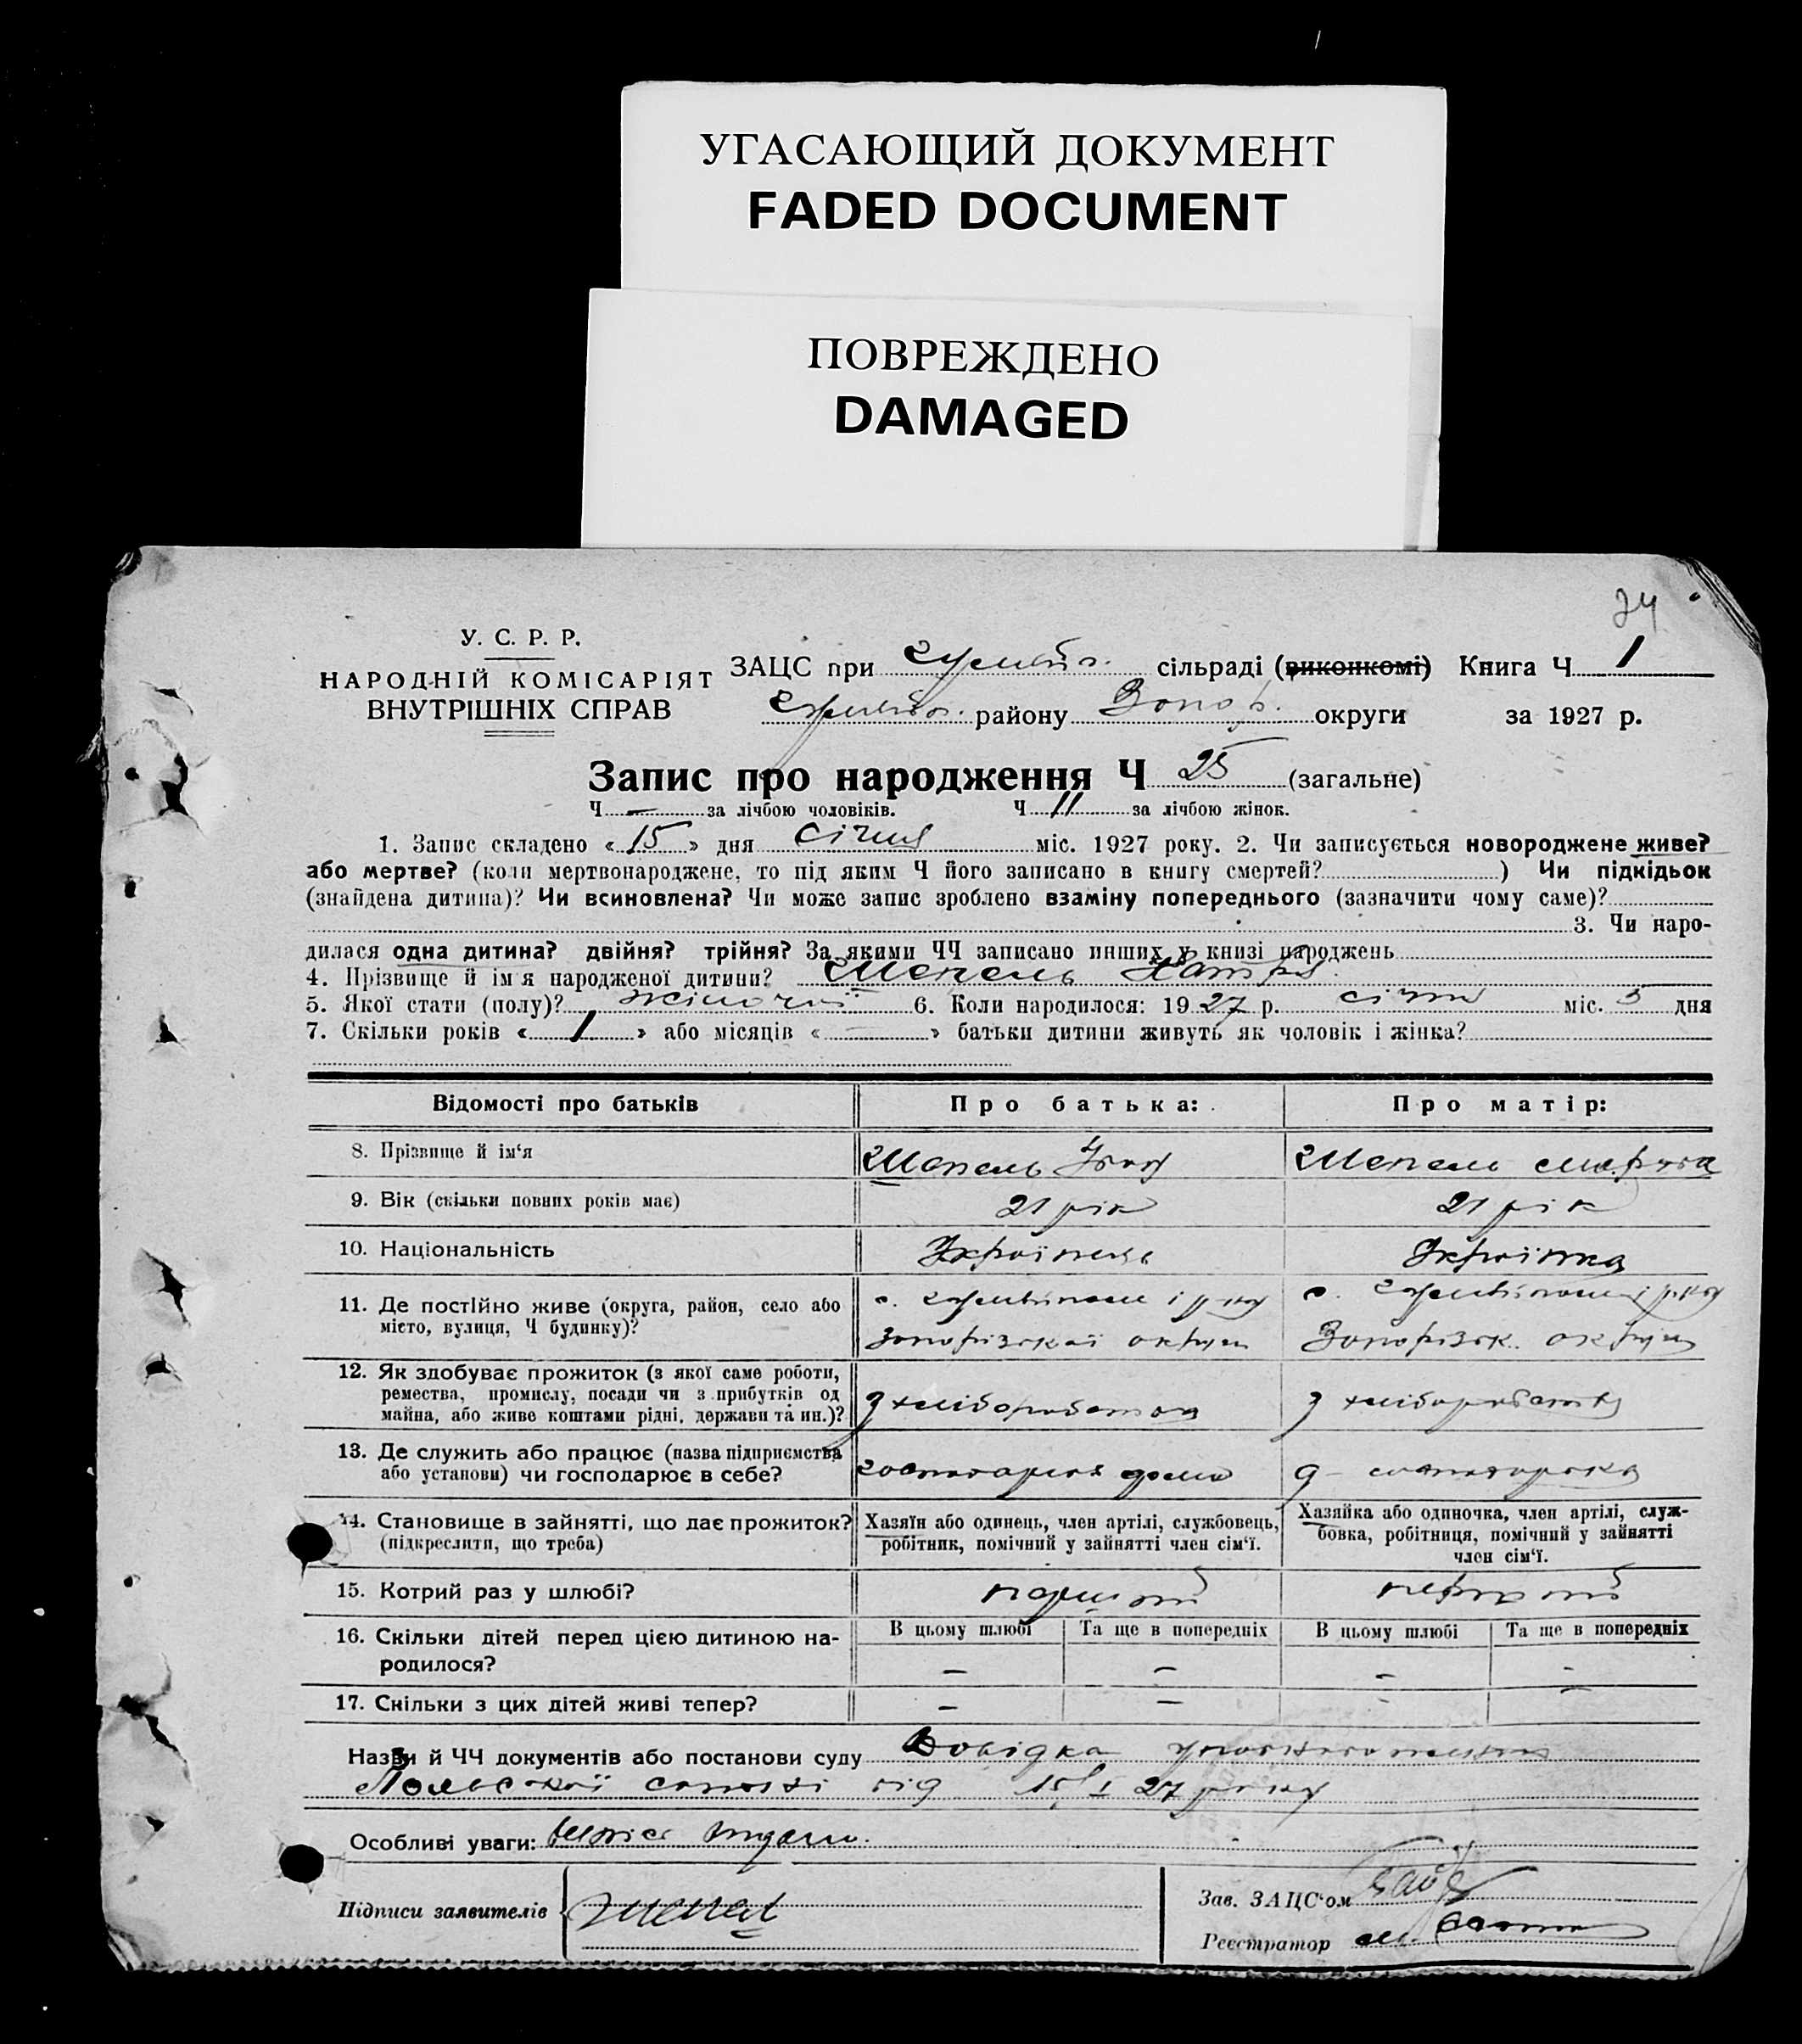 УГАСАЮЩИЙ ДОКУМЕНТ
FADED DOCUMENT
ПОВРЕЖДЕНО
DAMAGED
У. С. Р. Р.
НАРОДНІЙ КОМІСАРІЯТ
ВНУТРІШНІХ СПРАВ
ЗАЦС при сільраді (виконкомі) Книга Ч 1
району Запор. округи за 1927 р.
Запис про народження Ч 25 (загальне)
Ч — за лічбою чоловіків. Ч 11 за лічбою жінок.
1. Запис складено « 15 » дня січня міс. 1927 року. 2. Чи записується новороджене живе?
або мертве? (коли мертвонароджене, то під яким Ч його записано в книгу смертей? ) Чи підкідьок
(знайдена дитина)? Чи всиновлена? Чи може запис зроблено взаміну попереднього (зазначити чому саме)?
3. Чи наро-
дилася одна дитина? двійня? трійня? За якими ЧЧ записано инших у книзі народжень
4. Прізвище й ім'я народженої дитини? Шепель
5. Якої стати (полу)? жіночої 6. Коли народилося: 19 27 р. січня міс. 5 дня
7. Скільки років « 1 » або місяців « — » батьки дитини живуть як чоловік і жінка?
Відомості про батьків
Про батька:
Про матір:
8. Прізвище й ім'я
Шепель Іван
Шепель Марфа
9. Вік (скільки повних років має)
21 рік
21 рік
10. Національність
Українець
Українка
11. Де постійно живе (округа, район, село або
місто, вулиця, Ч будинку)?
с. і р-ну
Запорізької округи
с. і р-ну
Запорізьк. округи
12. Як здобуває прожиток (з якої саме роботи,
ремества, промислу, посади чи з прибутків од
майна, або живе коштами рідні, держави та ин.)?
з хліборобства
з хліборобства
13. Де служить або працює (назва підприємства
або установи) чи господарює в себе?
дома
14. Становище в зайнятті, що дає прожиток?
(підкреслити, що треба)
Хазяїн або одинець, член артілі, службовець,
робітник, помічний у зайнятті член сім'ї.
Хазяйка або одиночка, член артілі, служ-
бовка, робітниця, помічний у зайнятті
член сім'ї.
15. Котрий раз у шлюбі?
перший
перший
16. Скільки дітей перед цією дитиною на-
родилося?
В цьому шлюбі
Та ще в попередніх
В цьому шлюбі
Та ще в попередніх
— — — —
17. Скільки з цих дітей живі тепер?
— — — —
Назви й ЧЧ документів або постанови суду Довідка
від 15/I 27 року
Особливі уваги:
Підписи заявителів
Шепел
Зав. ЗАЦС'ом
Реєстратор